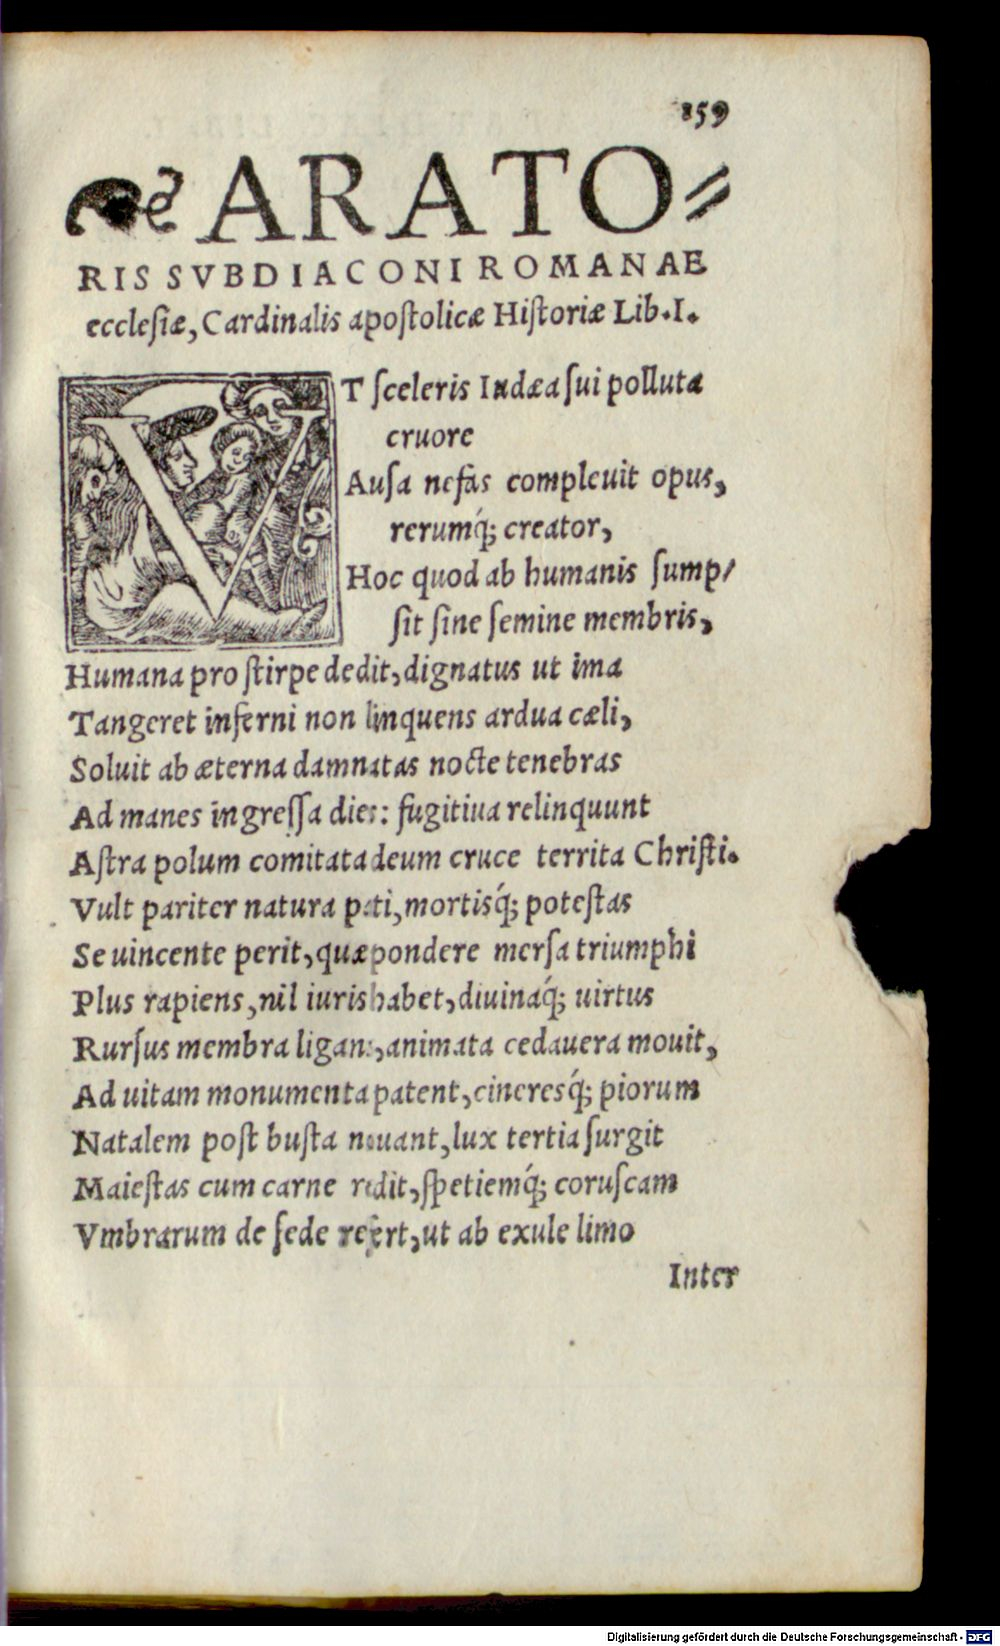 159
ARATO⸗
RIS SVBDIACONI ROMANAE
ecclesiæ, Cardinalis apostolicæ Historiæ Lib.I.
VT sceleris Iudæa sui polluta
cruore
Ausa nefas compleuit opus,
rerumq́; creator,
Hoc quod ab humanis sump/
sit sine semine membris,
Humana pro stirpe dedit, dignatus ut ima
Tangeret inferni non linquens ardua cæli,
Soluit ab æterna damnatas nocte tenebras
Ad manes ingressa dies: fugitiua relinquunt
Astra polum comitata deum cruce territa Christi.
Vult pariter natura pati, mortisq́; potestas
Se uincente perit, quæ pondere mersa triumphi
Plus rapiens, nil iuris habet, diuinaq́; uirtus
Rursus membra ligans, animata cedauera mouit,
Ad uitam monumenta patent, cineresq́; piorum
Natalem post busta nouant, lux tertia surgit
Maiestas cum carne redit, spetiemq́; coruscam
Vmbrarum de sede refert, ut ab exule limo
Inter
Digitalisierung gefördert durch die Deutsche Forschungsgemeinschaft - DFG